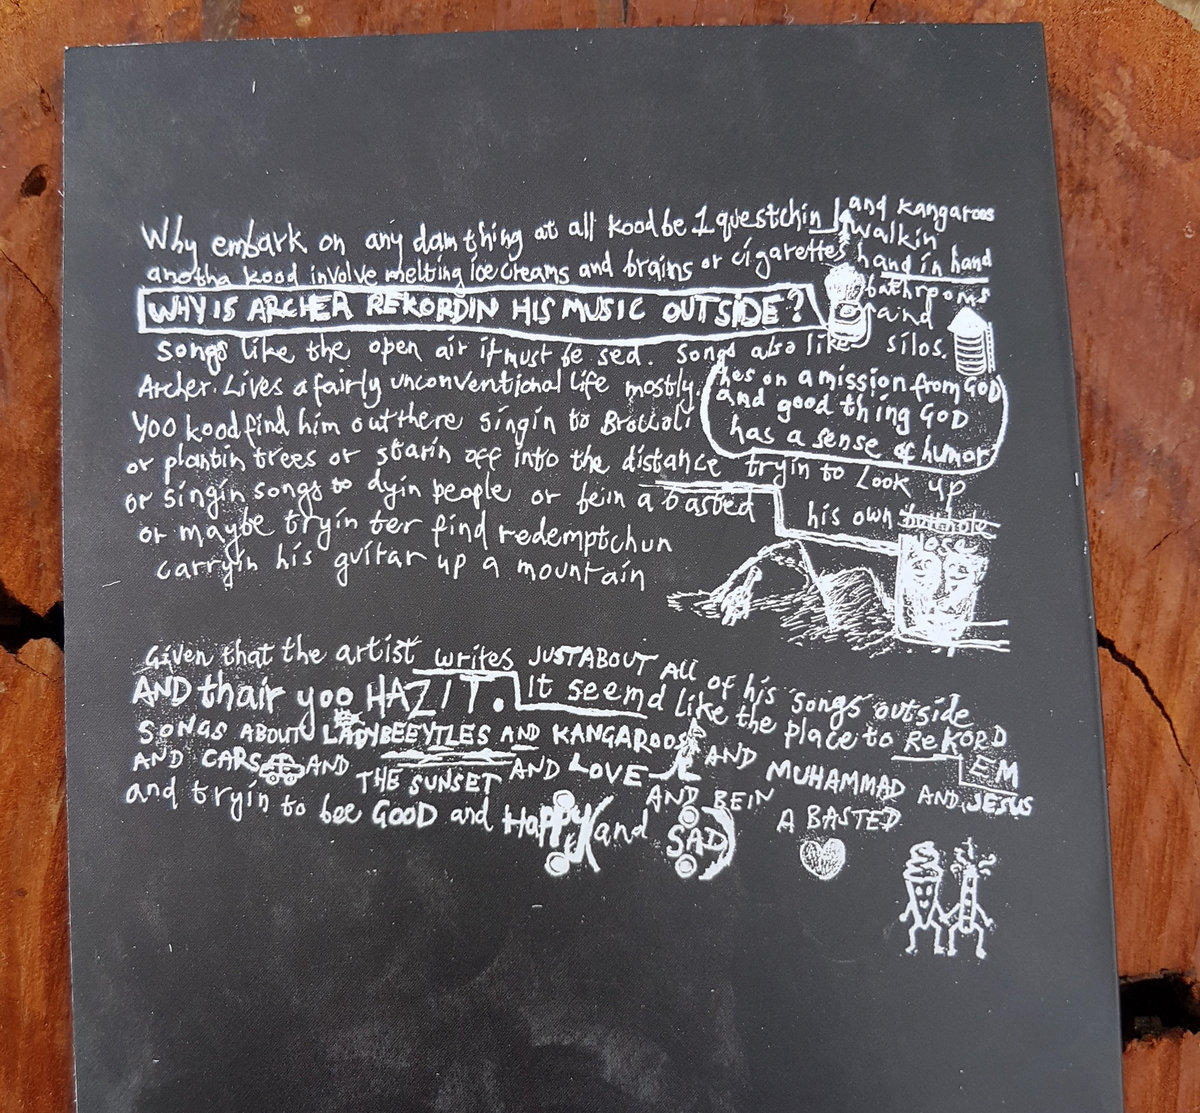 Why embark on any dam thing at all kood be 1 questchin
and kangaroos
walkin
hand in hand
anotha kood involve melting ice creams and brains or cigarettes
WHY IS ARCHER REKORDIN HIS MUSIC OUTSIDE?
songs like the open air it must be sed. songs also like
bathrooms
and
silos.
Archer. Lives a fairly unconventional life mostly.
hes on a mission from GOD
and good thing GOD
has a sense of humor
yoo kood find him out there singin to Broccoli
or plantin trees or starin off into the distance
or singin songs to dyin people or bein a basted
tryin to look up
his own butthole
Nose
or maybe tryin ter find redemptchun
carryin his guitar up a mountain
Given that the artist writes JUST ABOUT ALL of his songs outside
AND thair yoo HAZ IT. It seemd like the place to REKORD
EM
SONGS ABOUT LADYBEEYTLES AND KANGAROOS AND MUHAMMAD AND JESUS
AND CARS AND THE SUNSET AND LOVE AND BEIN A BASTED
and tryin to bee GOOD and HAPPY (and SAD)